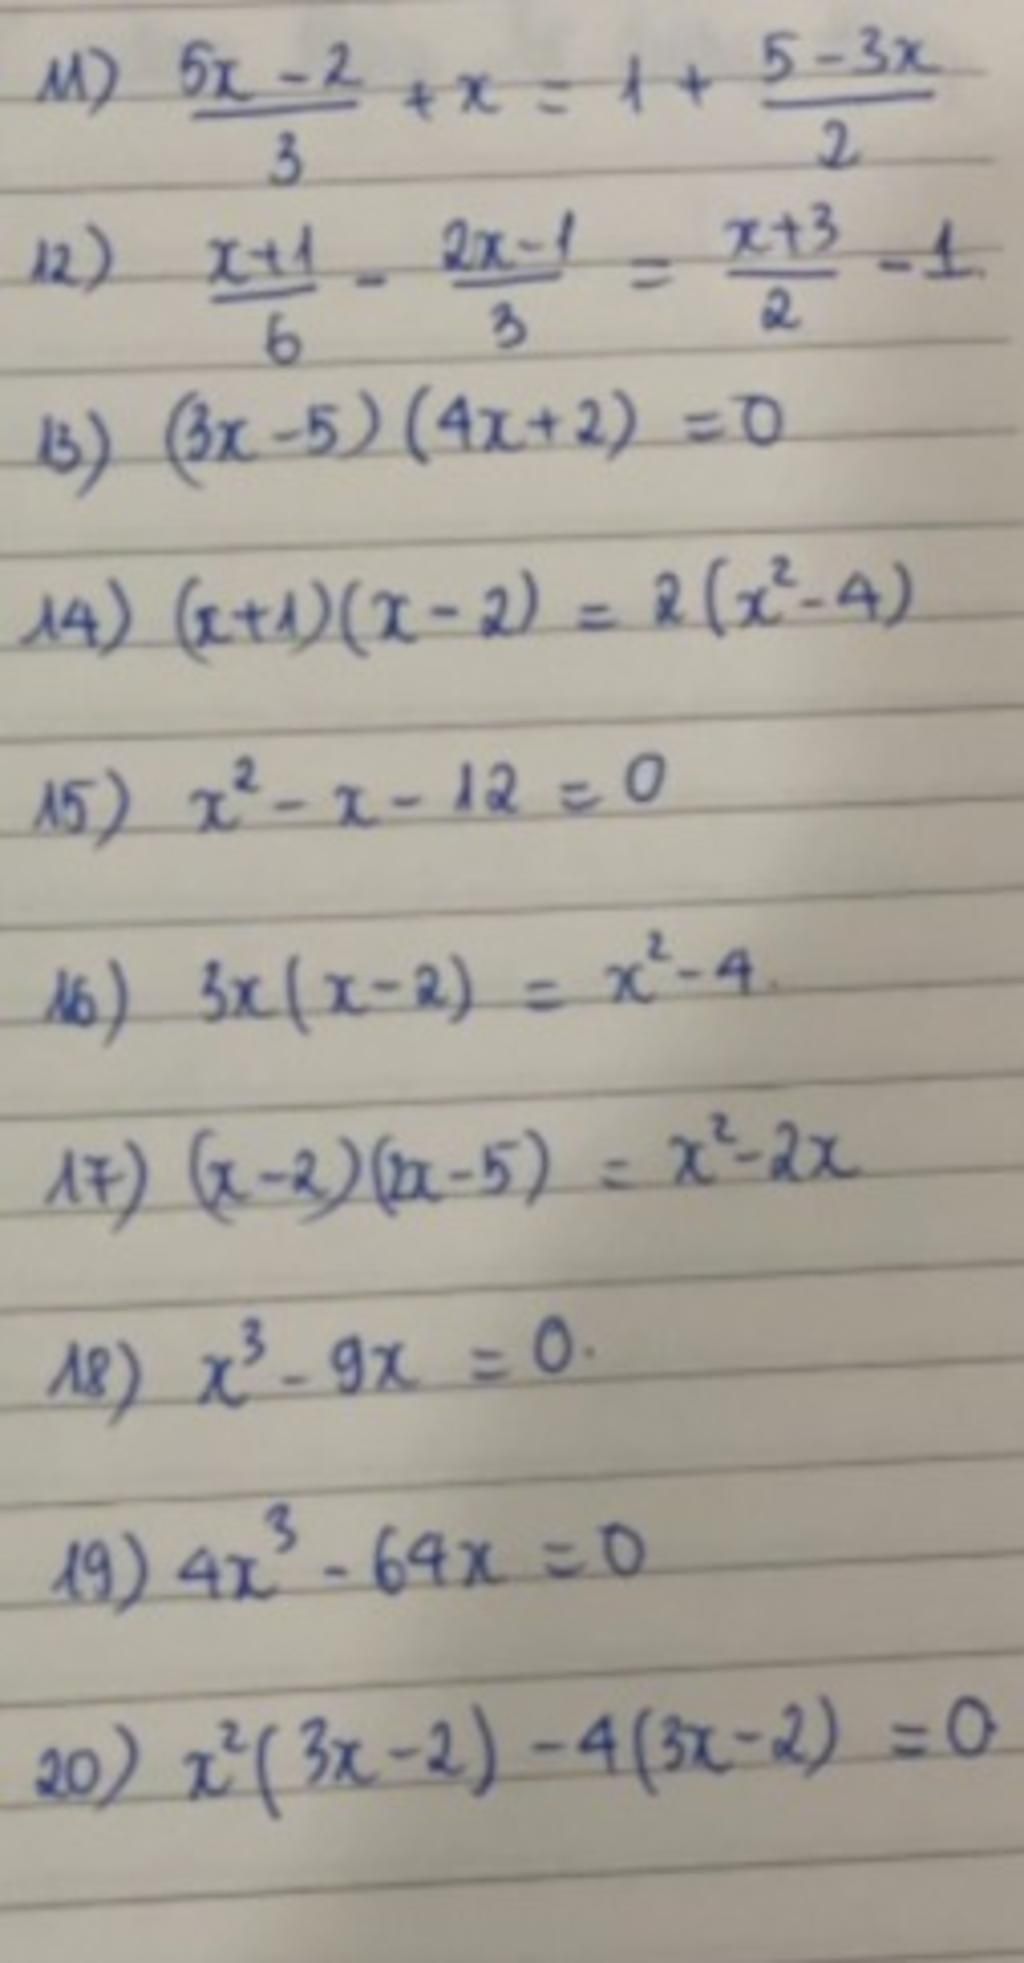 11) (5x-2)/3 + x = 1 + (5-3x)/2
12) (x+1)/6 - (2x-1)/3 = (x+3)/2 - 1.
13) (3x-5)(4x+2) = 0
14) (x+1)(x-2) = 2(x²-4)
15) x² - x - 12 = 0
16) 3x(x-2) = x²-4.
17) (x-2)(2x-5) = x²-2x
18) x³ - 9x = 0.
19) 4x³ - 64x = 0
20) x²(3x-2) - 4(3x-2) = 0